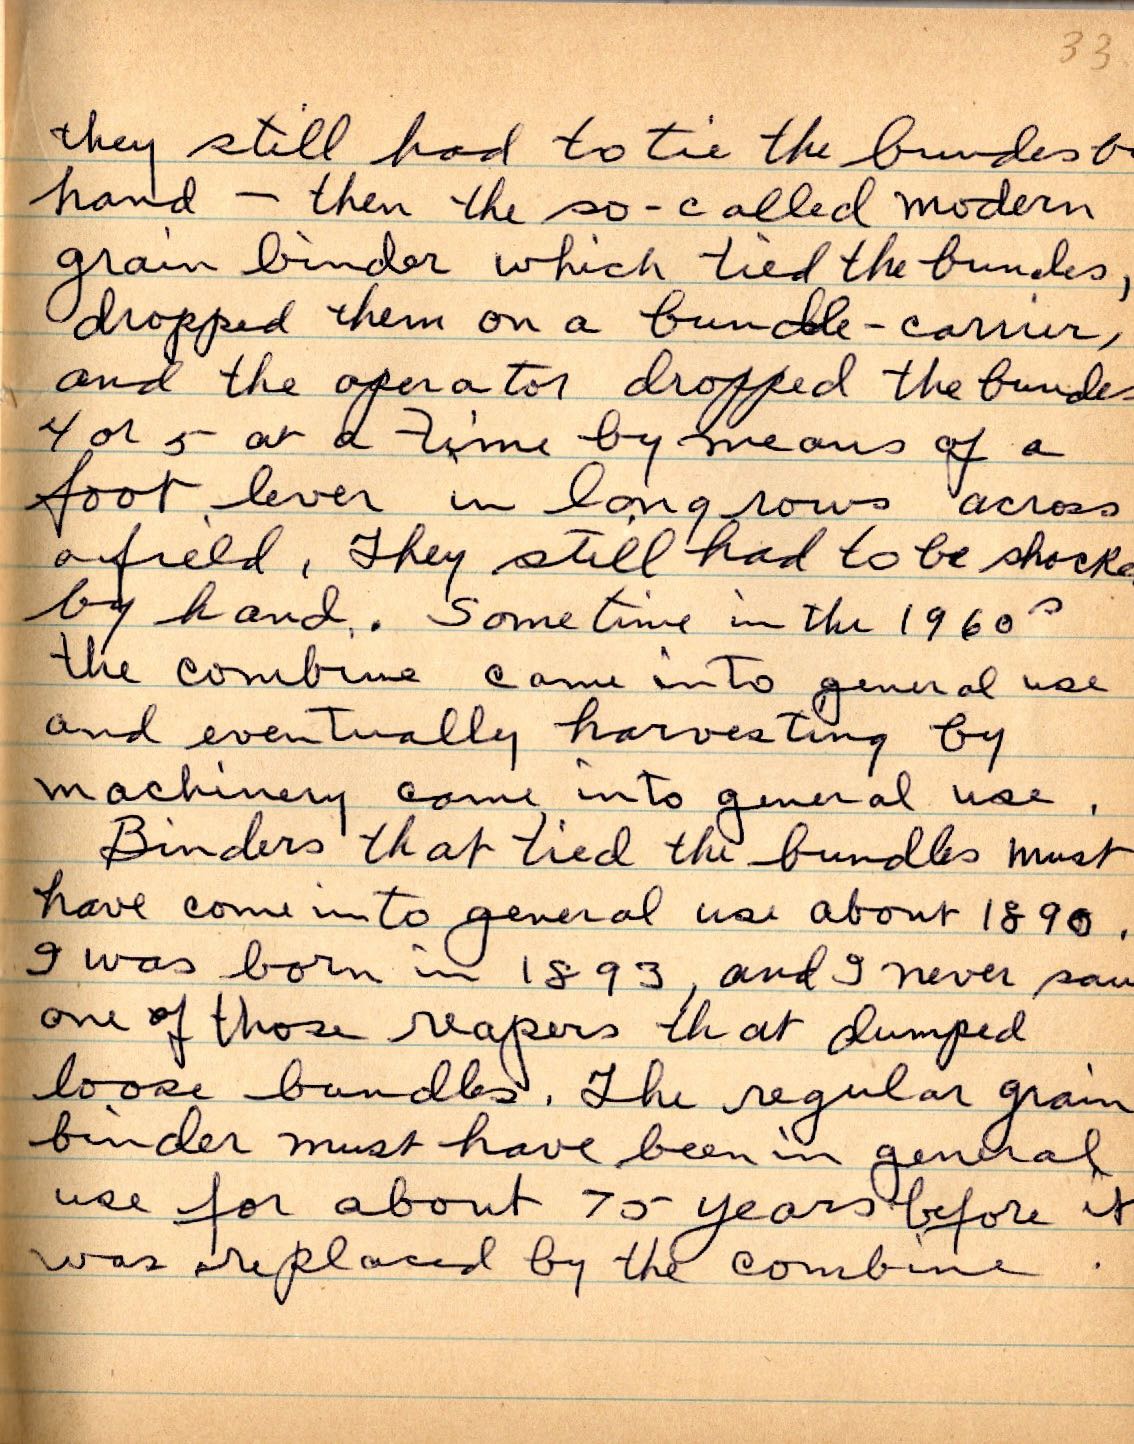 33.
they still had to tie the bundes b
hand – then the so-called modern
grain binder which tied the bundes,
dropped them on a bundle-carrier,
and the operator dropped the bundes
4 or 5 at a time by means of a
foot lever in long rows across
a field. They still had to be shocke
by hand. Sometime in the 1960s
the combine came into general use
and eventually harvesting by
machinery came into general use.
Binders that tied the bundles must
have come into general use about 1890.
I was born in 1893, and I never saw
one of those reapers that dumped
loose bundles. The regular grain
binder must have been in general
use for about 75 years before it
was replaced by the combine.